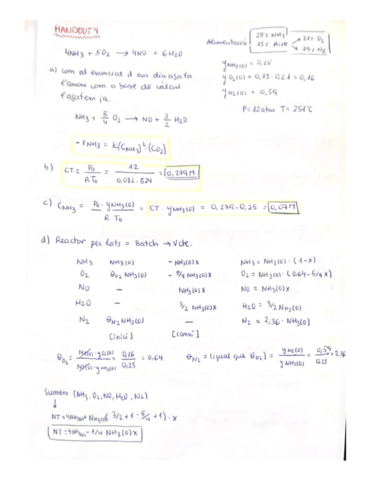 HANDOUT 4
4NH3 + 5O2 → 4NO + 6H2O
Alimentació 25% NH3 75% Aire 21% O2 79% N2
a) com al enunciat d'ens diu agafa
l'amoni com a base de calcul
l'agafem ja.
yNH3(0) = 0,25
yO2(0) = 0,75·0,21 = 0,16
yN2(0) = 0,59
P = 12 atm T = 251°C
NH3 + 5/4 O2 → NO + 3/2 H2O
- rNH3 = K(CNH3)²·(CO2)
b) CT = P0 / R T0 = 12 / 0,082·524 = 0,279M
c) CNH3 = P0·yNH3(0) / R·T0 = CT·yNH3(0) = 0,279·0,25 = 0,07M
d) Reactor per lots = Batch → V cte.
NH3 NH3(0) - NH3(0)X NH3 = NH3(0)·(1-X)
O2 θO2 NH3(0) - 5/4 NH3(0)X O2 = NH3(0)·(0,64-5/4X)
NO — NH3(0)X NO = NH3(0)X
H2O — 3/2 NH3(0)X H2O = 3/2 NH3(0)X
N2 θN2 NH3(0) — N2 = 2,36·NH3(0)
[inici] [canvi]
θO2 = 0,16 / 0,25 = 0,64
θN2 = (igual que θO2) = yN2(0) / yNH3(0) = 0,59 / 0,25 = 2,36
Sumatori (NH3, O2, NO, H2O, N2)
↓
NT = 4NH3(0) - 1/4 NH3(0)X